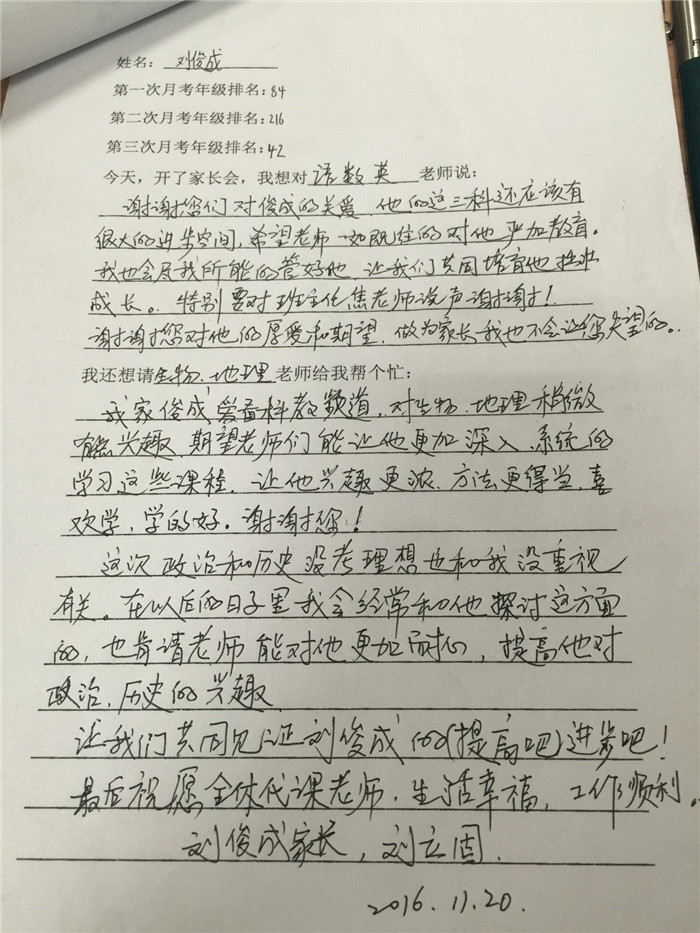 姓名：刘俊成
第一次月考年级排名：84
第二次月考年级排名：216
第三次月考年级排名：42
今天，开了家长会，我想对语数英老师说：
谢谢您们对俊成的关爱，他的这三科还应该有
很大的进步空间，希望老师一如既往的对他严加教育。
我也会尽我所能的管好他，让我们共同培育他茁壮
成长。特别要对班主任焦老师说声谢谢！
谢谢您对他的厚爱和期望，做为家长我也不会让您失望的。
我还想请生物、地理老师给我帮个忙：
我家俊成爱看科教频道，对生物、地理稍微
有点兴趣，期望老师们能让他更加深入、系统的
学习这些课程，让他兴趣更浓、方法更得当，喜
欢学，学的好。谢谢您！
这次政治和历史没考理想也和我没重视
有关。在以后的日子里我会经常和他探讨这方面
的，也肯请老师能对他更加耐心，提高他对
政治、历史的兴趣
让我们共同见证刘俊成的(提高吧)进步吧！
最后祝愿全体代课老师，生活幸福，工作顺利。
刘俊成家长，刘立固
2016.11.20.